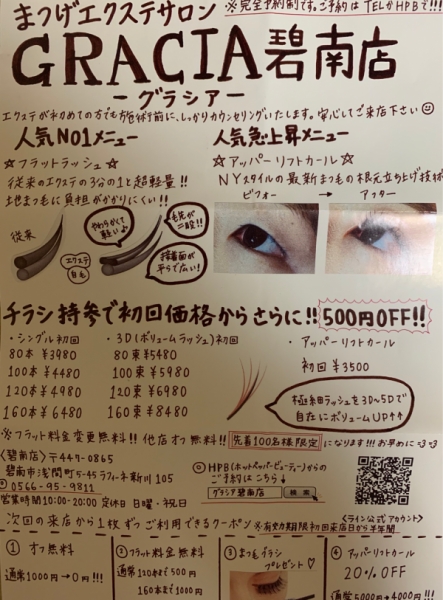 まつげエクステサロン ※完全予約制です。ご予約は TELかHPBで!!!
GRACIA 碧南店
-グラシアー
エクステが初めての方でも施術前に、しっかりカウンセリングいたします。安心してご来店下さい
人気NO1メニュー
☆フラットラッシュ☆
従来のエクステの3分の1と超軽量!!
地まつ毛に負担がかかりにくい!!
従来
やわらかくて軽い♪
毛先が二股!!
エクステ
自毛
接着面が平らで広い!
人気急上昇メニュー
☆アッパーリフトカール☆
NYスタイルの最新まつ毛の根元立ち上げ技術
ビフォー
アフター
チラシ持参で初回価格からさらに!! 500円OFF!!
・シングル初回
80本 ¥3980
100本 ¥4480
120本 ¥4980
160本 ¥6480
・3D(ボリュームラッシュ)初回
80束 ¥5480
100束 ¥5980
120束 ¥6980
160束 ¥8480
・アッパーリフトカール
初回 ¥3500
極細ラッシュを3D〜5Dで
自在にボリュームUP↑↑
※フラット料金変更無料!! 他店オフ無料!! 先着100名様限定 になります!! お早めに
<碧南店> 〒447-0865
碧南市浅間町5-45 ラフィーネ新川 105
0566-95-9811
営業時間10:00-20:00 定休日 日曜・祝日
◎HPB(ホットペッパービューティー)からの
ご予約はこちら
グラシア碧南店 検索
<ライン公式アカウント>
次回の来店から1枚ずつご利用できるクーポン ※有効期限初回来店日から半年間
① オフ無料
通常1000円→0円!!!
② フラット料金無料
通常 120本まで500円
160本まで1000円
③ まつ毛イラシ
プレゼント♡
④ アッパーリフトカール
20%OFF
通常5000円→4000円!!!